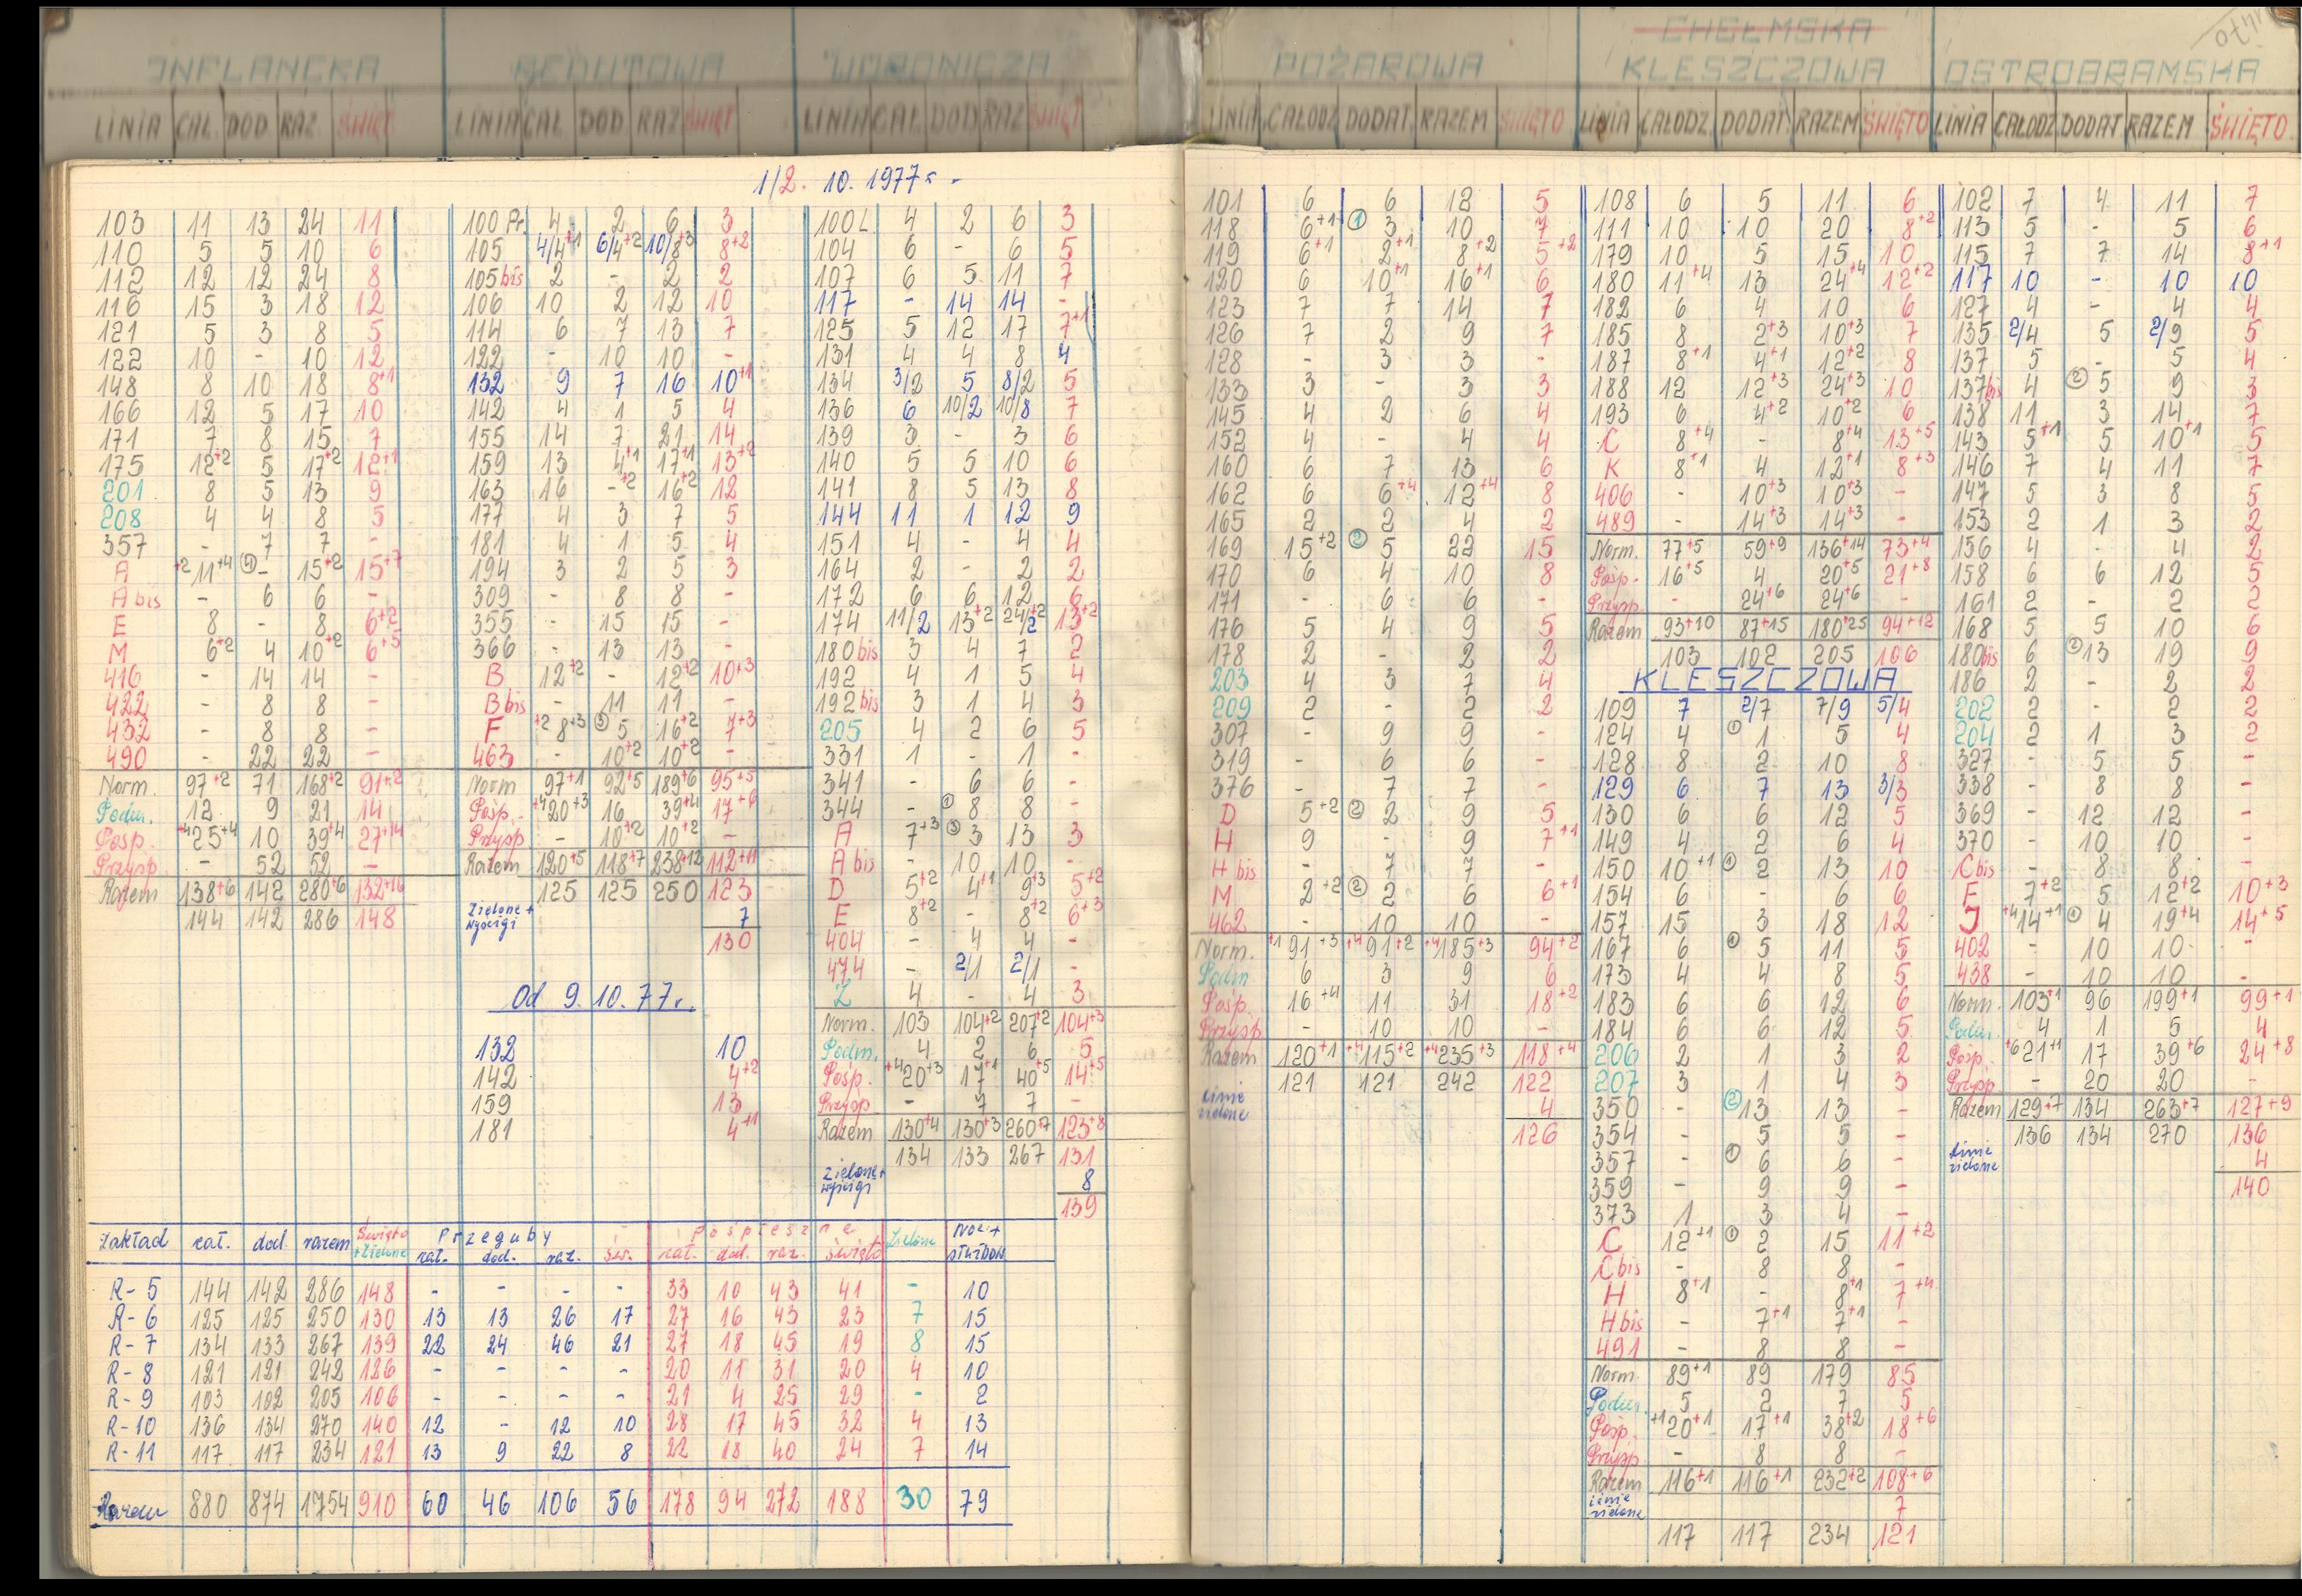 INFLANCKA
LINIA CAŁ. DOD RAZ ŚWIĘT
103 11 13 24 11
110 5 5 10 6
112 12 12 24 8
116 15 3 18 12
121 5 3 8 5
122 10 - 10 12
148 8 10 18 8+1
166 12 5 17 10
171 7 8 15 7
175 12+2 5 17+2 12+1
201 8 5 13 9
208 4 4 8 5
357 - 7 7 -
A +2 11+4 ④ - 15+2 15+7
A bis - 6 6 -
E 8 - 8 6+2
M 6+2 4 10+2 6+5
416 - 14 14 -
422 - 8 8 -
432 - 8 8 -
490 - 22 22 -
Norm. 97+2 71 168+2 91+2
Podm. 12 9 21 14
Posp. +4 25+4 10 39+4 27+14
Przysp. - 52 52 -
Razem 138+6 142 280+6 132+16
144 142 286 148
REDUTOWA
LINIA CAŁ DOD RAZ ŚWIĘT
1/2. 10. 1977r.
100 Pr. 4 2 6 3
105 4/4+1 6/4+2 10/8+3 8+2
105 bis 2 - 2 2
106 10 2 12 10
114 6 7 13 7
122 - 10 10 -
132 9 7 16 10+1
142 4 1 5 4
155 14 7 21 14
159 13 4+1 17+1 13+2
163 16 -+2 16+2 12
177 4 3 7 5
181 4 1 5 4
194 3 2 5 3
309 - 8 8 -
355 - 15 15 -
366 - 13 13 -
B 12+2 - 12+2 10+3
B bis - 11 11 -
F +2 8+3 ③ 5 16+2 7+3
463 - 10+2 10+2 -
Norm 97+1 92+5 189+6 95+5
Pośp. +4 20+3 16 39+4 17+6
Przysp - 10+2 10+2 -
Razem 120+5 118+7 238+12 112+11
125 125 250 123
Zielone + wyścigi 7
130
Od 9. 10. 77r.
132 10
142 4+2
159 13
181 4+1
WORONICZA
LINIA CAŁ DOD RAZ ŚWIĘT
100 L 4 2 6 3
104 6 - 6 5
107 6 5 11 7
117 - 14 14 -
125 5 12 17 7+1
131 4 4 8 4
134 3/2 5 8/2 5
136 6 10/2 10/8 7
139 3 - 3 6
140 5 5 10 6
141 8 5 13 8
144 11 1 12 9
151 4 - 4 4
164 2 - 2 2
172 6 6 12 6
174 11/2 13+2 24/2+2 13+2
180 bis 3 4 7 2
192 4 1 5 4
192 bis 3 1 4 3
205 4 2 6 5
331 1 - 1 -
341 - 6 6 -
344 - ① 8 8 -
A 7+3 ③ 3 13 3
A bis - 10 10 -
D 5+2 4+1 9+3 5+2
E 8+2 - 8+2 6+3
404 - 4 4 -
474 - 2/1 2/1 -
Z 4 - 4 3
Norm. 103 104+2 207+2 104+3
Podm. 4 2 6 5
Pośp. +4 20+3 17+1 40+5 14+5
Przysp - 7 7 -
Razem 130+4 130+3 260+7 123+8
134 133 267 131
Zielone + wyścigi 8
139
Zakład cał. dod. razem Święto + Zielone Przeguby cał. dod. raz. św. Pośpieszne cał. dod. raz. święto Zielone Noc. +
R-5 144 142 286 148 - - - - 33 10 43 41 - 10
R-6 125 125 250 130 13 13 26 17 27 16 43 23 7 15
R-7 134 133 267 139 22 24 46 21 27 18 45 19 8 15
R-8 121 121 242 126 - - - - 20 11 31 20 4 10
R-9 103 102 205 106 - - - - 21 4 25 29 - 2
R-10 136 134 270 140 12 - 12 10 28 17 45 32 4 13
R-11 117 117 234 121 13 9 22 8 22 18 40 24 7 14
Razem 880 874 1754 910 60 46 106 56 178 94 272 188 30 79
POŻAROWA
LINIA CAŁODZ DODAT. RAZEM ŚWIĘTO
101 6 6 12 5
118 6+1 ① 3 10 7
119 6+1 2+1 8+2 5+2
120 6 10+1 16+1 6
123 7 7 14 7
126 7 2 9 7
128 - 3 3 -
133 3 - 3 3
145 4 2 6 4
152 4 - 4 4
160 6 7 13 6
162 6 6+4 12+4 8
165 2 2 4 2
169 15+2 ② 5 22 15
170 6 4 10 8
171 - 6 6 -
176 5 4 9 5
178 2 - 2 2
203 4 3 7 4
209 2 - 2 2
307 - 9 9 -
319 - 6 6 -
376 - 7 7 -
D 5+2 ② 2 9 5
H 9 - 9 7+1
H bis - 7 7 -
M 2+2 ② 2 6 6+1
462 - 10 10 -
Norm. +1 91+3 +4 91+2 +4 185+3 94+2
Podm 6 3 9 6
Pośp. 16+4 11 31 18+2
Przysp - 10 10 -
Razem 120+1 +4 115+2 +4 235+3 118+4
121 121 242 122
Linie zielone 4
126
CHEŁMSKA
KLESZCZOWA
LINIA CAŁODZ. DODAT. RAZEM ŚWIĘTO
108 6 5 11 6
111 10 10 20 8+2
179 10 5 15 10
180 11+4 13 24+4 12+2
182 6 4 10 6
185 8 2+3 10+3 7
187 8+1 4+1 12+2 8
188 12 12+3 24+3 10
193 6 4+2 10+2 6
C 8+4 - 8+4 13+5
K 8+1 4 12+1 8+3
406 - 10+3 10+3 -
489 - 14+3 14+3 -
Norm. 77+5 59+9 136+14 73+4
Pośp. 16+5 4 20+5 21+8
Przysp. - 24+6 24+6 -
Razem 93+10 87+15 180+25 94+12
103 102 205 106
KLESZCZOWA
109 7 2/7 7/9 5/4
124 4 ① 1 5 4
128 8 2 10 8
129 6 7 13 3/3
130 6 6 12 5
149 4 2 6 4
150 10+1 ① 2 13 10
154 6 - 6 6
157 15 3 18 12
167 6 ① 5 11 5
173 4 4 8 5
183 6 6 12 6
184 6 6 12 5
206 2 1 3 2
207 3 1 4 3
350 - ② 13 13 -
354 - 5 5 -
357 - ① 6 6 -
359 - 9 9 -
373 1 3 4 -
C 12+1 ① 2 15 11+2
C bis - 8 8 -
H 8+1 - 8+1 7+4
H bis - 7+1 7+1 -
491 - 8 8 -
Norm. 89+1 89 179 85
Podm. 5 2 7 5
Pośp. +1 20+1 17+1 38+2 18+6
Przysp - 8 8 -
Razem 116+1 116+1 232+2 108+6
Linie zielone 7
117 117 234 121
OSTROBRAMSKA
LINIA CAŁODZ DODAT RAZEM ŚWIĘTO
102 7 4 11 7
113 5 - 5 6
115 7 7 14 8+1
117 10 - 10 10
127 4 - 4 4
135 2/4 5 2/9 5
137 5 - 5 4
137bis 4 ② 5 9 3
138 11 3 14 7
143 5+1 5 10+1 5
146 7 4 11 7
147 5 3 8 5
153 2 1 3 2
156 4 - 4 2
158 6 6 12 5
161 2 - 2 2
168 5 5 10 6
180bis 6 ② 13 19 9
186 2 - 2 2
202 2 - 2 2
204 2 1 3 2
327 - 5 5 -
338 - 8 8 -
369 - 12 12 -
370 - 10 10 -
C bis - 8 8 -
F 7+2 5 12+2 10+3
J +4 14+1 ① 4 19+4 14+5
402 - 10 10 -
438 - 10 10 -
Norm. 103+1 96 199+1 99+1
Podm. 4 1 5 4
Pośp. +6 21+1 17 39+6 24+8
Przysp - 20 20 -
Razem 129+7 134 263+7 127+9
136 134 270 136
Linie zielone 4
140